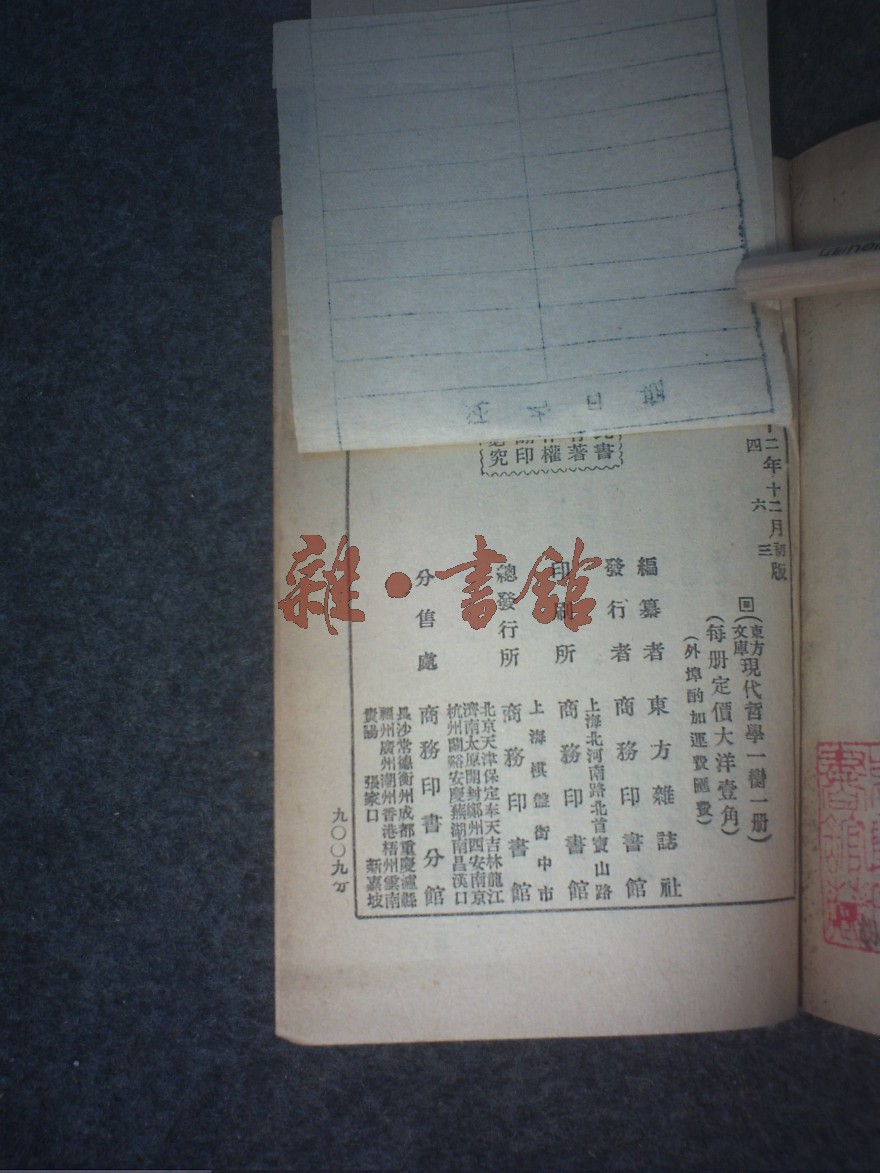 十二年十二月初版
四 六 三
回(東方文庫)現代哲學一臠一册)
(每册定價大洋壹角)
(外埠酌加運費匯費)
編纂者 東方雜誌社
發行者 商務印書館
上海北河南路北首寶山路
印刷所 商務印書館
上海棋盤街中市
總發行所 商務印書館
北京天津保定奉天吉林龍江
濟南太原開封鄭州西安南京
杭州蘭谿安慶蕪湖南昌漢口
分售處 商務印書分館
長沙常德衡州成都重慶瀘縣
廣州潮州香港梧州雲南
貴陽 張家口 新嘉坡
書
著
權
印
究
九〇〇九
雜·書館